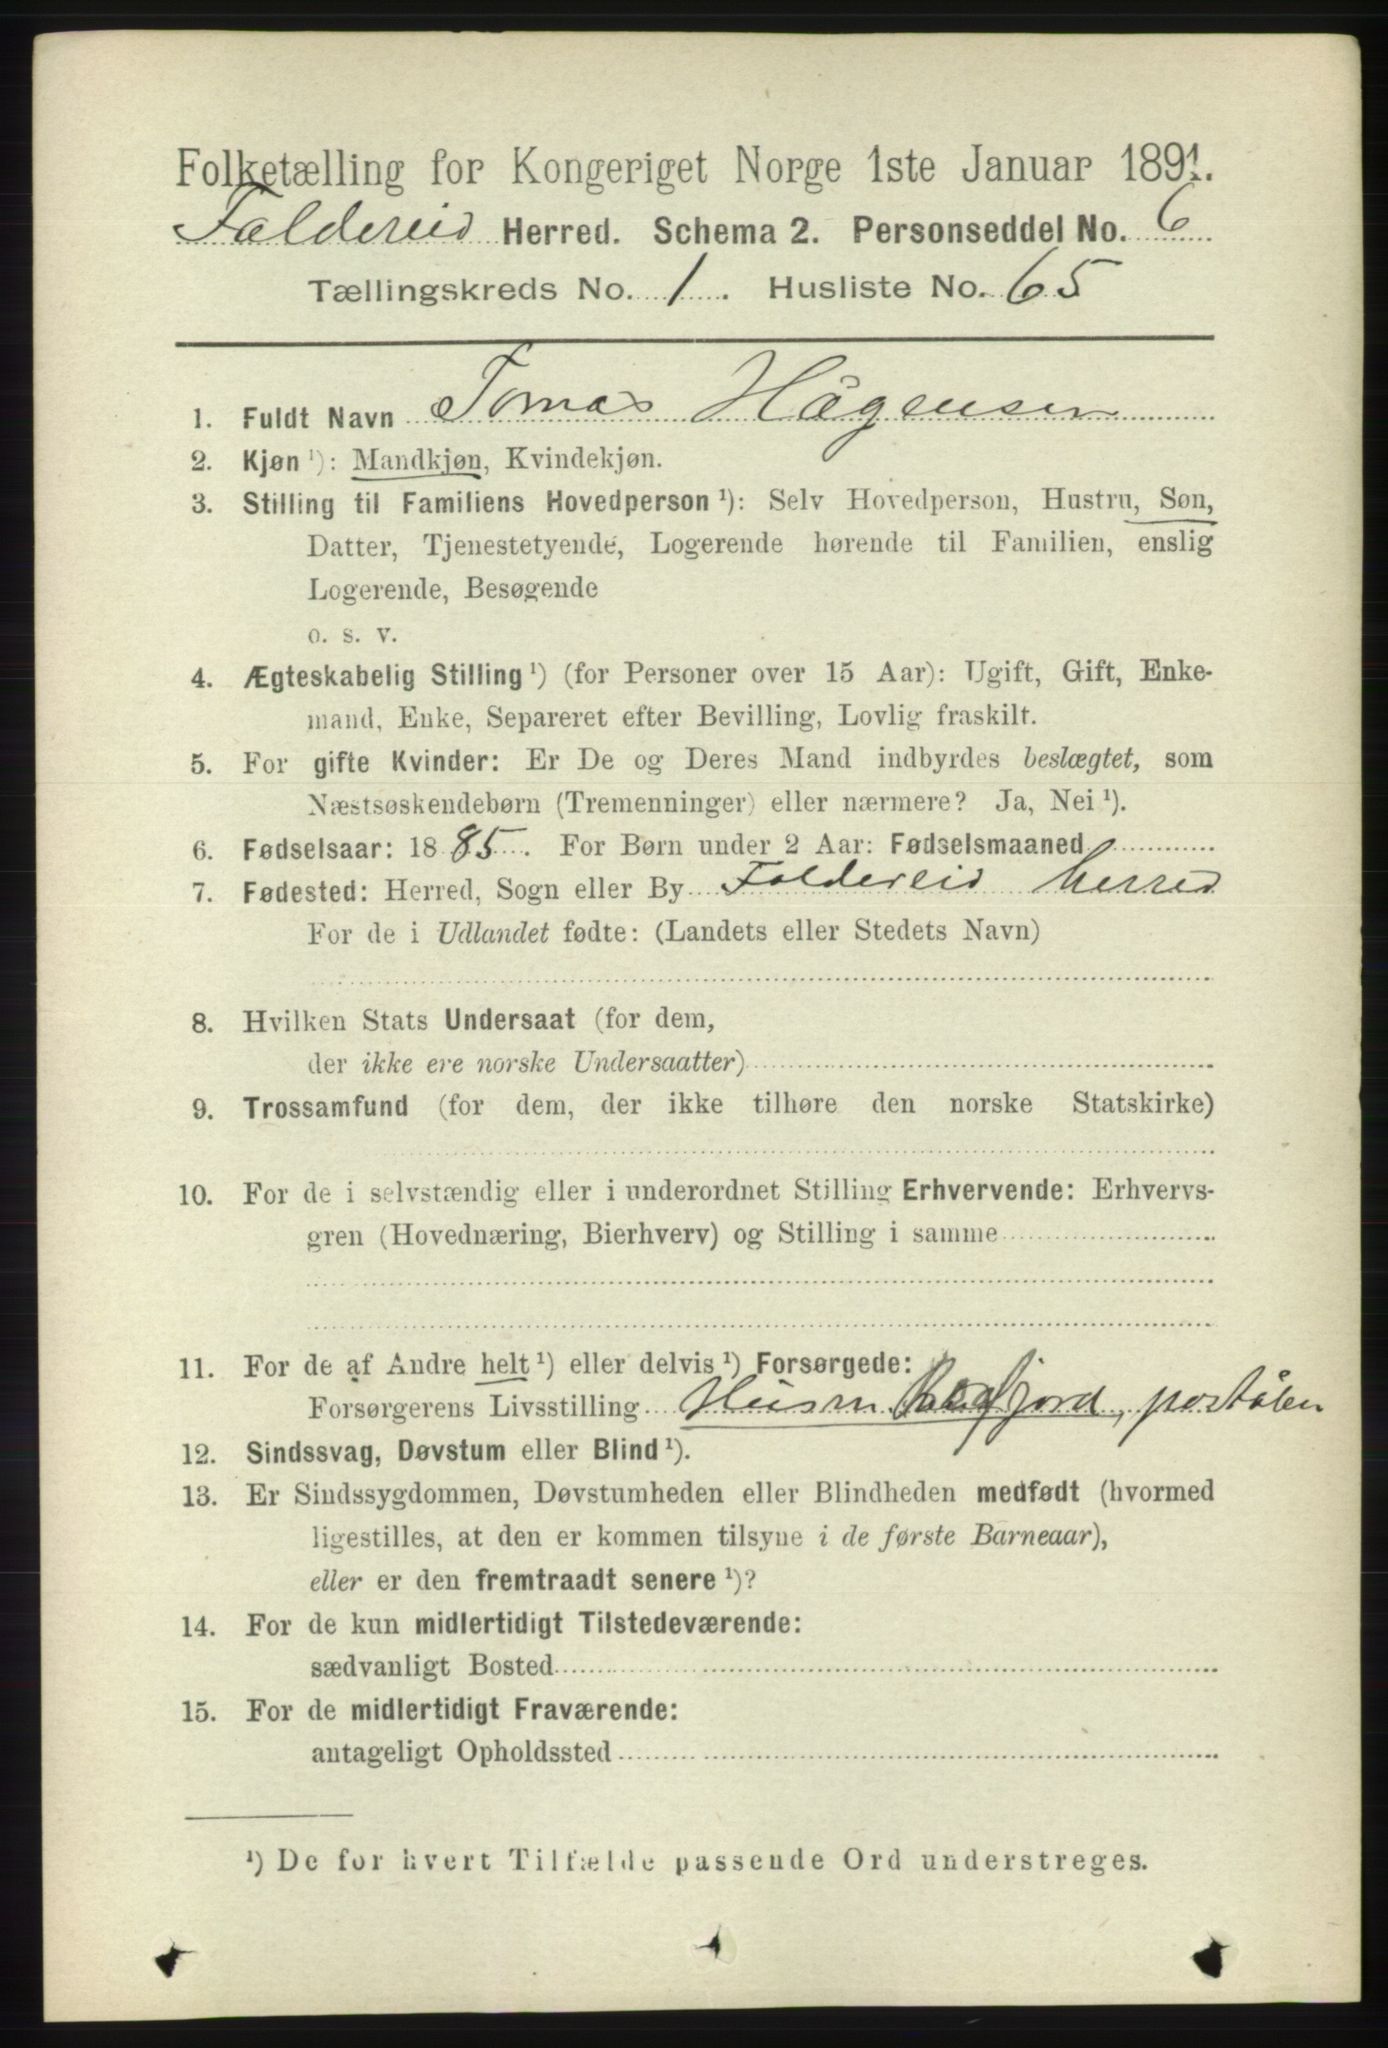 Folketælling for Kongeriget Norge 1ste Januar 1891.
Foldereid Herred. Schema 2. Personseddel No. 6
Tællingskreds No. 1. Husliste No. 65
1. Fuldt Navn Tomas Hågensen
2. Kjøn ¹): Mandkjøn, Kvindekjøn.
3. Stilling til Familiens Hovedperson ¹): Selv Hovedperson, Hustru, Søn,
Datter, Tjenestetyende, Logerende hørende til Familien, enslig
Logerende, Besøgende
o. s. v.
4. Ægteskabelig Stilling ¹) (for Personer over 15 Aar): Ugift, Gift, Enke-
mand, Enke, Separeret efter Bevilling, Lovlig fraskilt.
5. For gifte Kvinder: Er De og Deres Mand indbyrdes beslægtet, som
Næstsøskendebørn (Tremenninger) eller nærmere? Ja, Nei ¹).
6. Fødselsaar: 1885. For Børn under 2 Aar: Fødselsmaaned
7. Fødested: Herred, Sogn eller By Foldereid herred
For de i Udlandet fødte: (Landets eller Stedets Navn)
8. Hvilken Stats Undersaat (for dem,
der ikke ere norske Undersaatter)
9. Trossamfund (for dem, der ikke tilhøre den norske Statskirke)
10. For de i selvstændig eller i underordnet Stilling Erhvervende: Erhvervs-
gren (Hovednæring, Bierhverv) og Stilling i samme
11. For de af Andre helt ¹) eller delvis ¹) Forsørgede:
Forsørgerens Livsstilling Husm jord,
12. Sindssvag, Døvstum eller Blind ¹).
13. Er Sindssygdommen, Døvstumheden eller Blindheden medfødt (hvormed
ligestilles, at den er kommen tilsyne i de første Barneaar),
eller er den fremtraadt senere ¹)?
14. For de kun midlertidigt Tilstedeværende:
sædvanligt Bosted
15. For de midlertidigt Fraværende:
antageligt Opholdssted
¹) De for hvert Tilfælde passende Ord understreges.